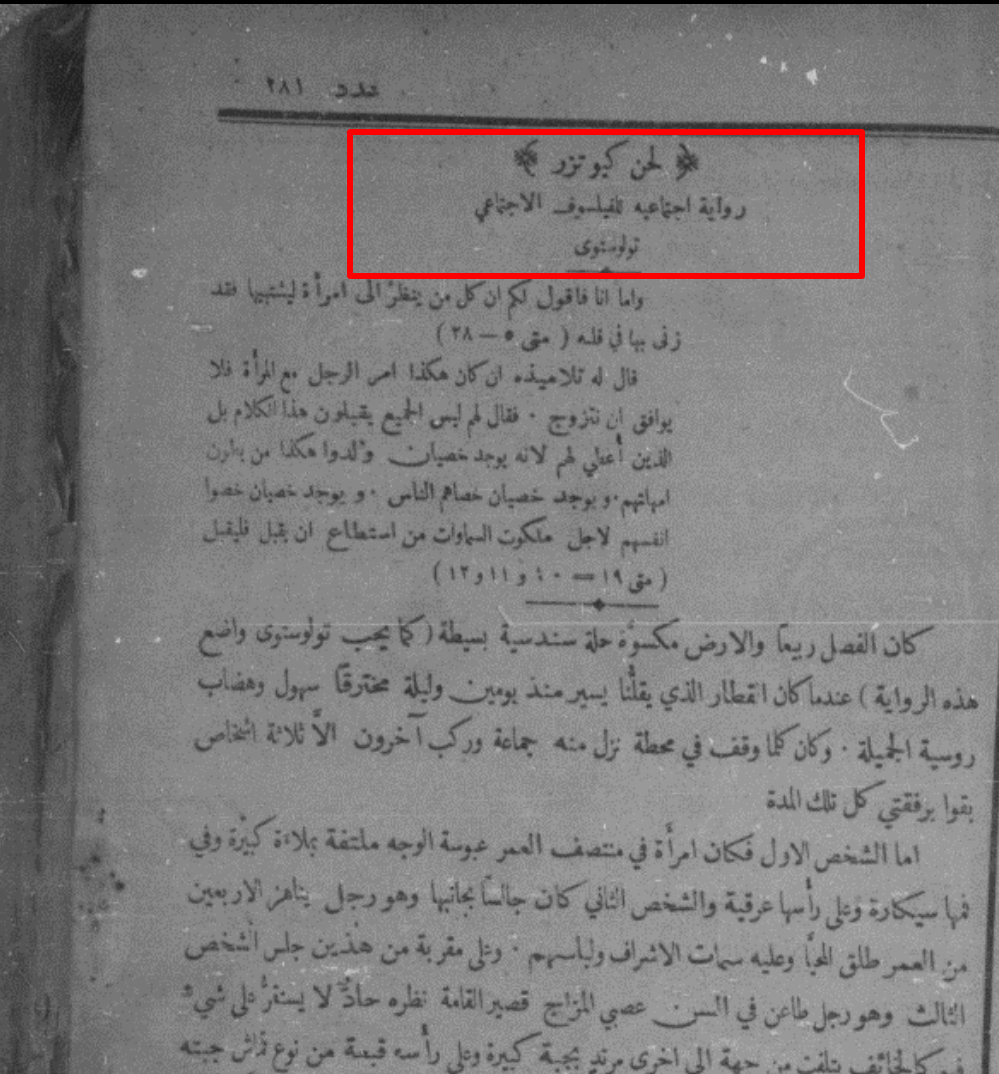 عدد ٢٨١
لحن كيوتزر
رواية اجتماعيه للفيلسوف الاجتماعي
تولوستوى
واما انا فاقول لكم ان كل من ينظرُ الى امرأة ليشتهيها فقد
زنى بها في قلبه ( متى ٥ — ٢٨ )
قال له تلاميذه ان كان هكذا امر الرجل مع المرأة فلا
يوافق ان نتزوج ٠ فقال لهم ليس الجميع يقبلون هذا الكلام بل
الذين أُعطي لهم لانه يوجد خصيان وُلدوا هكذا من بطون
امهاتهم ٠ و يوجد خصيان خصاهم الناس ٠ و يوجد خصيان خصوا
انفسهم لاجل ملكوت السماوات من استطاع ان يقبل فليقبل
( متى ١٩ = ١٠ و ١١ و ١٢ )
كان الفصل ربيعاً والارض مكسوَّة حلة سندسية بسيطة ( كما يحب تولوستوى واضع
هذه الرواية ) عندما كان القطار الذي يقلُّنا يسير منذ يومين وليلة مخترقاً سهول وهضاب
روسية الجميلة ٠ وكان كلما وقف في محطة نزل منه جماعة وركب آخرون الاَّ ثلاثة اشخاص
بقوا برفقتي كل تلك المدة
اما الشخص الاول فكان امرأة في منتصف العمر عبوسة الوجه ملتفة بملاءة كبيرة وفي
فمها سيكارة وعلى رأسها عرقية والشخص الثاني كان جالساً بجانبها وهو رجل يناهز الاربعين
من العمر طلق المحيَّا وعليه سمات الاشراف ولباسهم ٠ وعلى مقربة من هذين جلس الشخص
الثالث وهو رجل طاعن في السن عصبي المزاج قصير القامة نظره حادٌّ لا يستقرُّ على شيءٍ
فهو كالخائف يتلفت من جهة الى اخرى مرتدٍ بجبة كبيرة وعلى رأسه قبعة من نوع قماش جبته